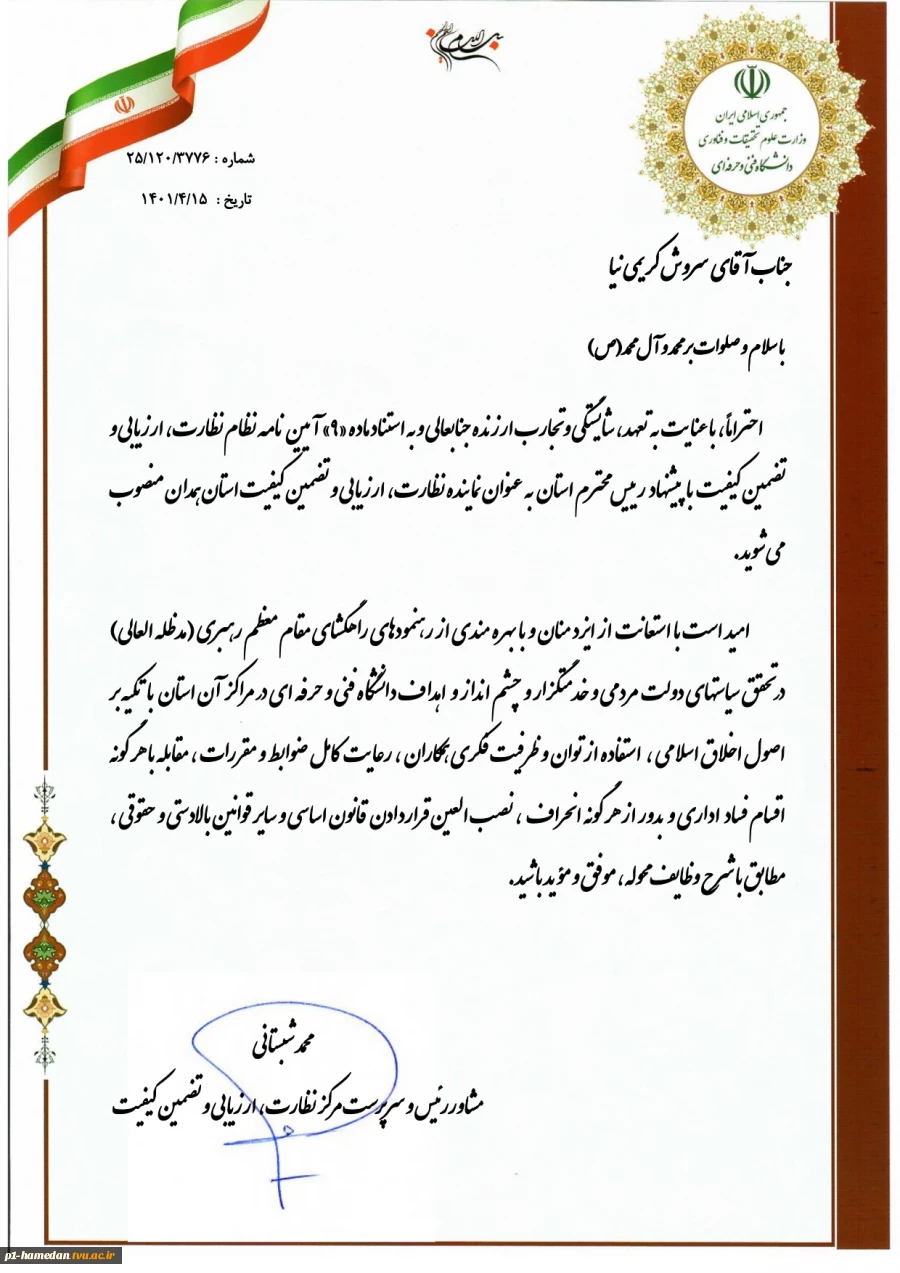 بسم الله الرحمن الرحیم
جمهوری اسلامی ایران
وزارت علوم تحقیقات و فناوری
دانشگاه فنی و حرفه ای
شماره : ۲۵/۱۲۰/۳۷۷۶
تاریخ : ۱۴۰۱/۴/۱۵
جناب آقای سروش کریمی نیا
با سلام و صلوات بر محمد و آل محمد (ص)
احتراماً، با عنایت به تعهد، شایستگی و تجارب ارزنده جنابعالی و به استناد ماده «۹» آیین نامه نظام نظارت، ارزیابی و
تضمین کیفیت با پیشنهاد رییس محترم استان به عنوان نماینده نظارت، ارزیابی و تضمین کیفیت استان همدان منصوب
می شوید.
امید است با استعانت از ایزد منان و با بهره مندی از رهنمودهای راهگشای مقام معظم رهبری (مدظله العالی)
در تحقق سیاستهای دولت مردمی و خدمتگزار و چشم انداز و اهداف دانشگاه فنی و حرفه ای در مراکز آن استان با تکیه بر
اصول اخلاق اسلامی ، استفاده از توان و ظرفیت فکری همکاران ، رعایت کامل ضوابط و مقررات ، مقابله با هر گونه
اقسام فساد اداری و بدور از هر گونه انحراف ، نصب العین قرار دادن قانون اساسی و سایر قوانین بالادستی و حقوقی ،
مطابق با شرح وظایف محوله ، موفق و مؤید باشید.
محمد شبستانی
مشاور رئیس و سرپرست مرکز نظارت، ارزیابی و تضمین کیفیت
p1-hamedan.tvu.ac.ir